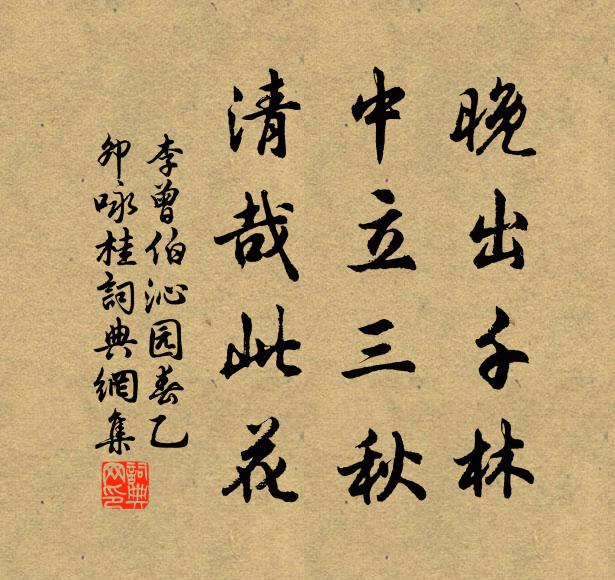 晚出千林
中立三秋
清哉此花
李曾伯沁园春乙
卯咏桂詞典網集
詞典
网印